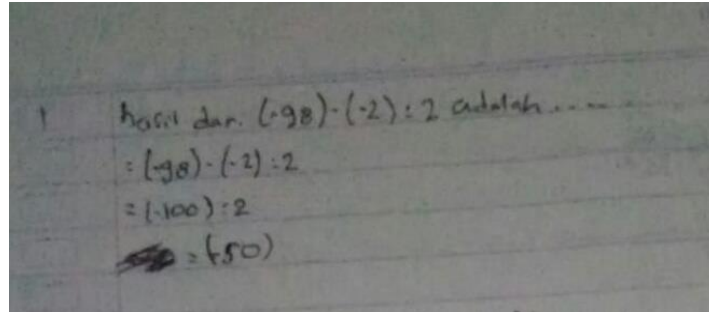 1 hasil dari (-98)-(-2):2 adalah .....
= (-98)-(-2):2
= (-100):2
= (-50)